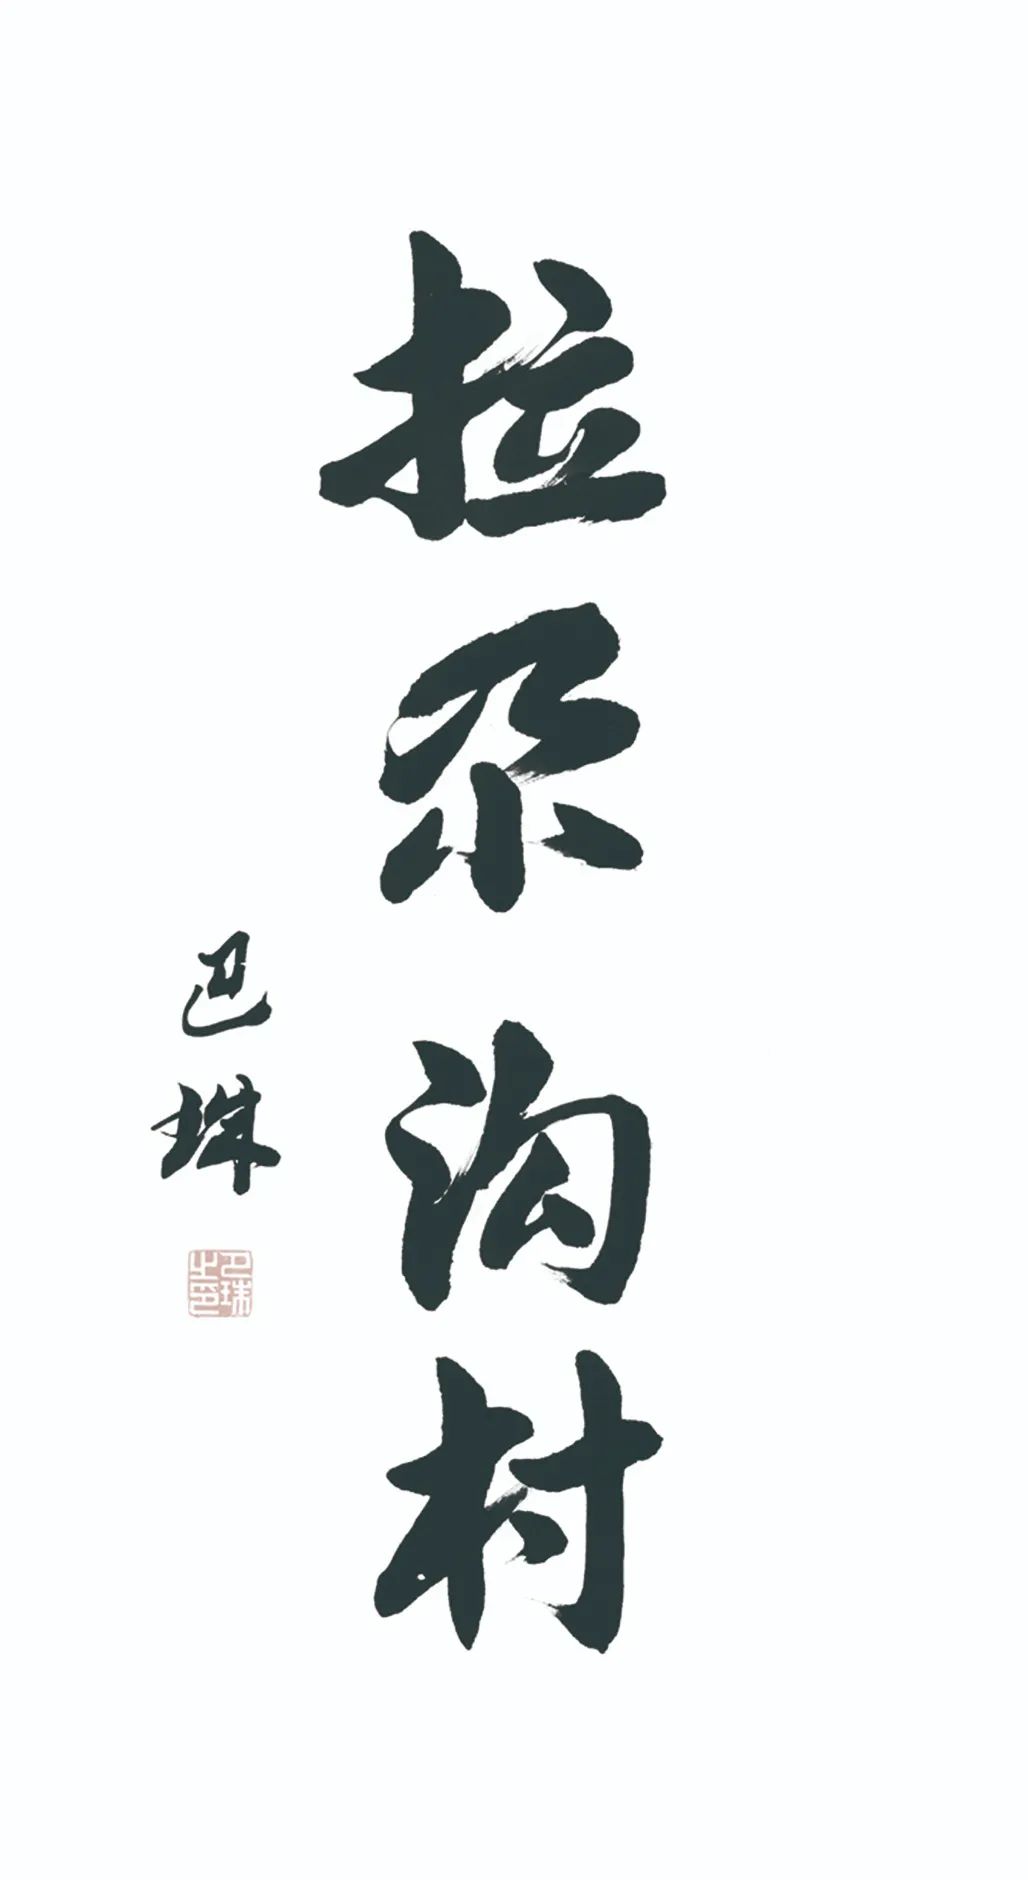 拉尕沟村
巴珠
巴珠之印